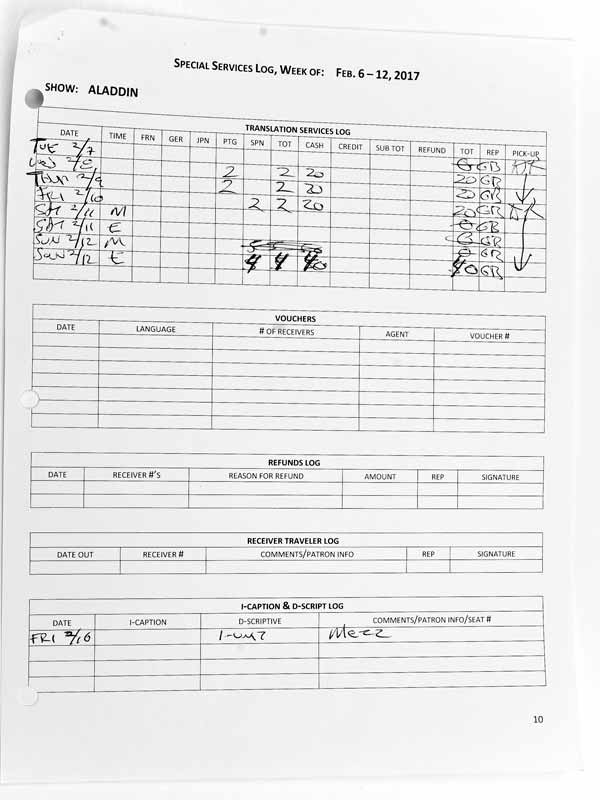 SPECIAL SERVICES LOG, WEEK OF: FEB. 6 – 12, 2017
SHOW: ALADDIN
TRANSLATION SERVICES LOG
DATE TIME FRN GER JPN PTG SPN TOT CASH CREDIT SUB TOT REFUND TOT REP PICK-UP
TUE 2/7 0 GB
WED 2/8 2 2 20 20 GB
THUR 2/9 2 2 20 20 GB
FRI 2/10 2 2 20 20 GB
SAT 2/11 M 0 GB
SAT 2/11 E 0 GB
SUN 2/12 M 0 GB
SUN 2/12 E 4 4 40 40 GB
VOUCHERS
DATE LANGUAGE # OF RECEIVERS AGENT VOUCHER #
REFUNDS LOG
DATE RECEIVER #'S REASON FOR REFUND AMOUNT REP SIGNATURE
RECEIVER TRAVELER LOG
DATE OUT RECEIVER # COMMENTS/PATRON INFO REP SIGNATURE
I-CAPTION & D-SCRIPT LOG
DATE I-CAPTION D-SCRIPTIVE COMMENTS/PATRON INFO/SEAT #
FRI 2/10 1-unit Mezz
10